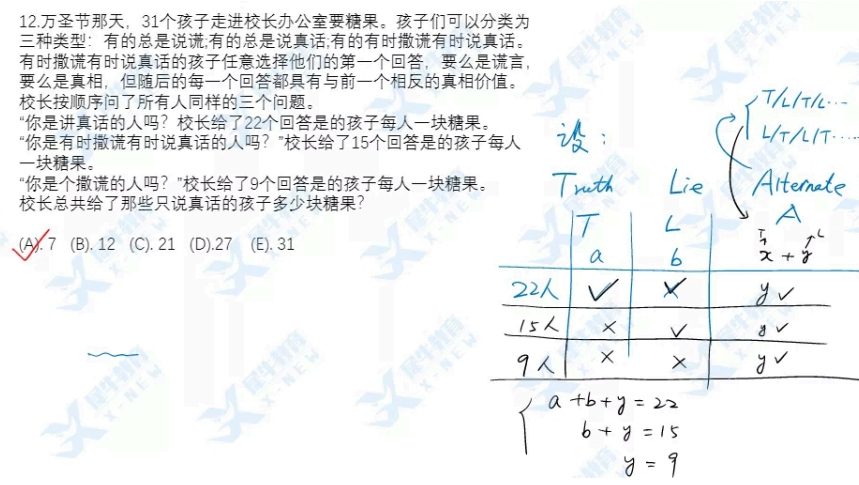 12.万圣节那天，31个孩子走进校长办公室要糖果。孩子们可以分类为
三种类型：有的总是说谎;有的总是说真话;有的有时撒谎有时说真话。
有时撒谎有时说真话的孩子任意选择他们的第一个回答，要么是谎言，
要么是真相，但随后的每一个回答都具有与前一个相反的真相价值。
校长按顺序问了所有人同样的三个问题。
“你是讲真话的人吗？校长给了22个回答是的孩子每人一块糖果。
“你是有时撒谎有时说真话的人吗？”校长给了15个回答是的孩子每人
一块糖果。
“你是个撒谎的人吗？”校长给了9个回答是的孩子每人一块糖果。
校长总共给了那些只说真话的孩子多少块糖果？
(A). 7 (B). 12 (C). 21 (D).27 (E). 31
T/L/T/L...
L/T/L/T...
设：
Truth Lie Alternate
T L A
T L
a b x + y
22人 ✓ ✓ y ✓
15人 × ✓ y ✓
9人 × × y ✓
a + b + y = 22
b + y = 15
y = 9
犀牛教育
X-NEW